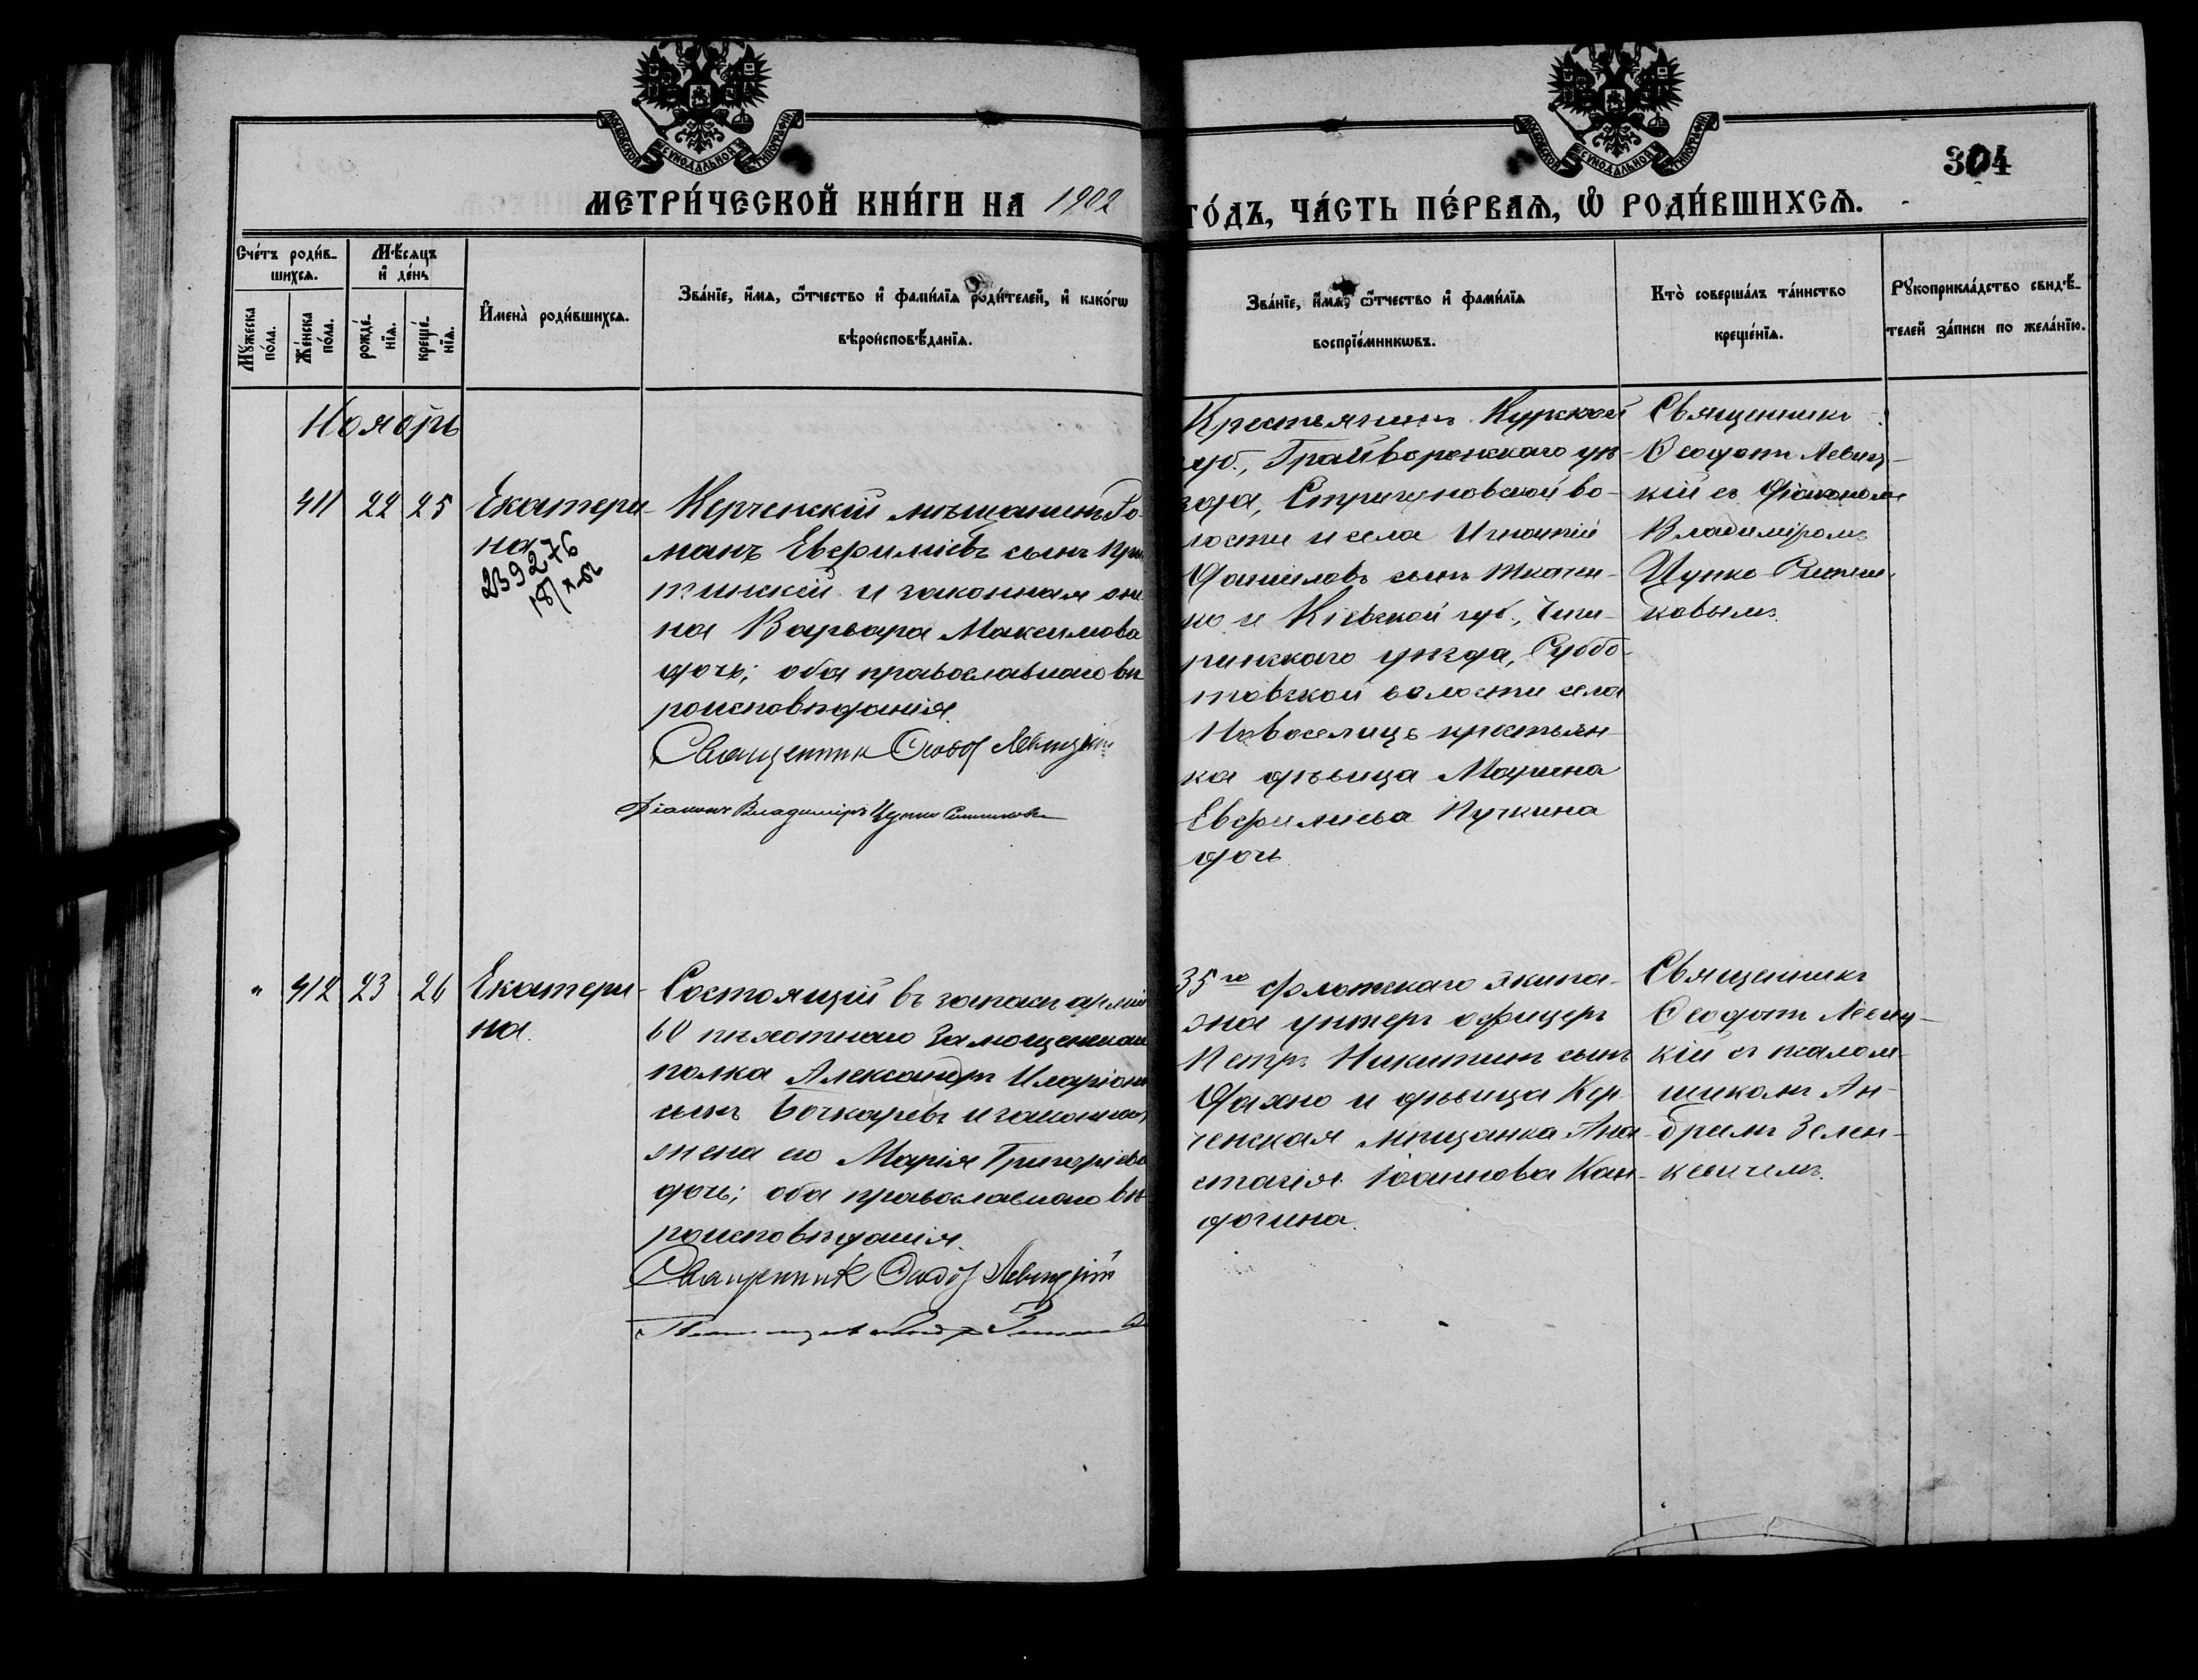 МОСКОВСКОЙ СУНОДАЛЬНОЙ ТИПОГРАФІИ
МОСКОВСКОЙ СУНОДАЛЬНОЙ ТИПОГРАФІИ
304
МЕТРИ́ЧЕСКОЙ КНИ́ГИ НА 1902
ГО́ДЪ, ЧА́СТЬ ПЕ́РВАѦ, Ѡ҆ РОДИ́ВШИХСѦ.
Сче́тъ роди́в-
шихсѧ.
Мꙋ́жеска
по́ла.
Же́нска
по́ла.
Мѣ́сѧцъ
и҆ де́нь
рожде́-
нїѧ.
креще́-
нїѧ.
И҆мена̀ роди́вшихсѧ.
Зва́нїе, и҆́мѧ, ѻ҆́тчество и҆ фами́лїѧ роди́телей, и҆ како́гѡ
вѣроисповѣ́данїѧ.
Зва́нїе, и҆́мѧ, ѻ҆́тчество и҆ фами́лїѧ
воспрїе́мникѡвъ.
Кто̀ соверша́лъ та́инство
креще́нїѧ.
Рꙋкоприкла́дство свидѣ́-
телей за́писи по жела́нїю.
Ноябрь
411 22 25
Екатери-
на
23976
Керченскій мѣщанинъ Ро-
манъ Евфиміевъ сынъ
и законная
на Варвара Максимова
дочь; оба православнаго вѣ
роисповѣданія.
Священник Феодот Левицкій
Діаконъ Владиміръ Цупко Ситников
Крестьянинъ Курской
губ., Грайворонскаго уѣ-
зда, Стригуновской во-
лости и села Игнатій
Даниловъ сынъ Ткачен-
ко и Кіевской губ., Чиги-
ринскаго уѣзда, Суббо-
товской волости села
Новоселицъ крестьян-
ка дѣвица Марина
Евфиміева Пучкина
дочь.
Священникъ
Ѳеодотъ Левиц-
кій съ діакономъ
Владиміромъ
Цупко Ситни-
ковымъ.
" 412 23 26
Екатери-
на.
Состоящій въ запасѣ арміи
60 пѣхотнаго Замощскаго
полка Александръ Иларіоновъ
сынъ Бочкаревъ и законная
жена его Марія Григоріева
дочь; оба православнаго вѣ
роисповѣданія.
Священник Феодот Левицкій
35го флотскаго экипа-
жа унтеръ офицеръ
Петръ Никитинъ сынъ
Дахно и дѣвица Кер-
ченская мѣщанка Ана-
стасія Іоаннова Кан-
догина.
Священникъ
Ѳеодотъ Левиц-
кій съ псалом-
щикомъ Ан-
дреемъ Зелен-
кевичемъ.